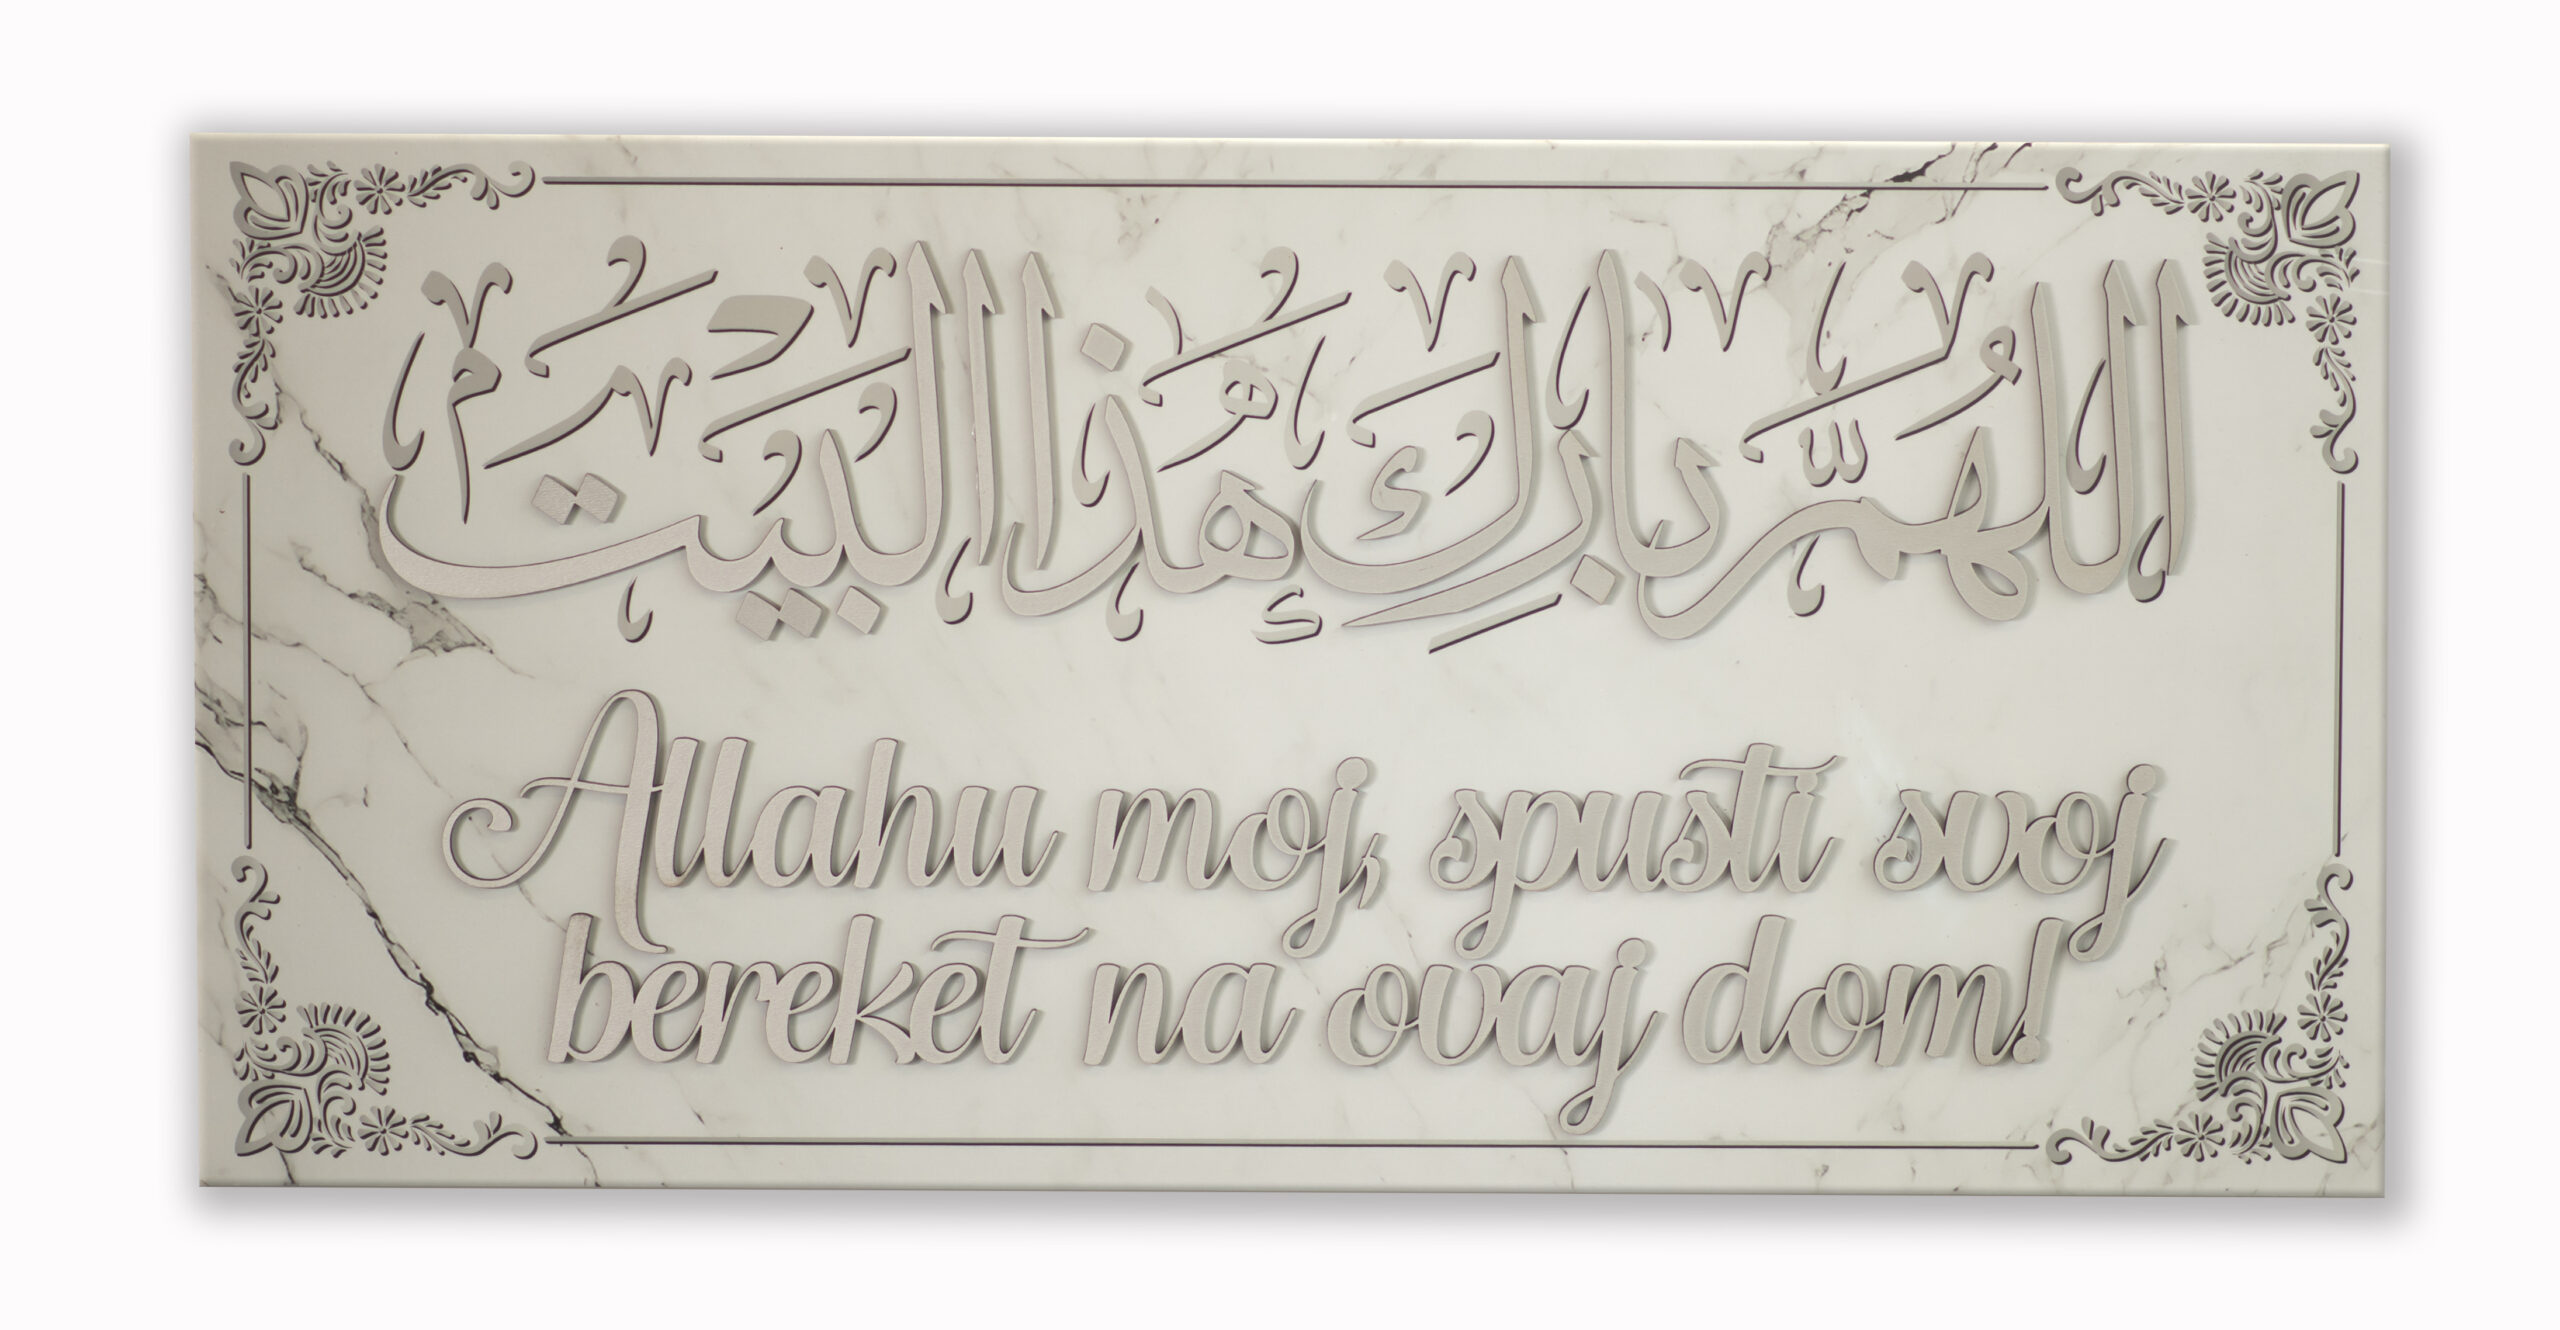 اللهم بارك هذا البيت
Allahu moj, spusti svoj
bereket na ovaj dom!